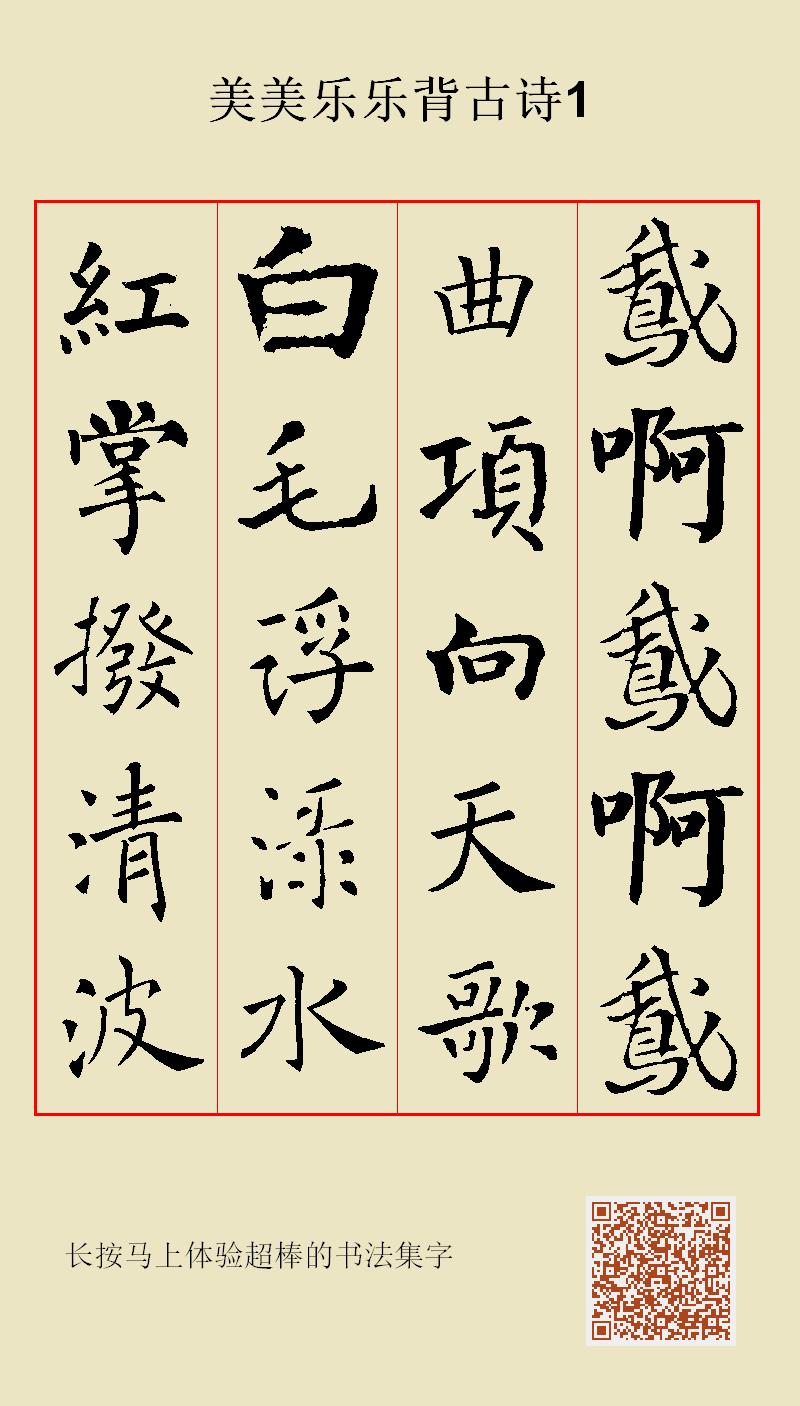 美美乐乐背古诗1
鵞啊鵞啊鵞
曲項向天歌
白毛浮渌水
紅掌撥清波
长按马上体验超棒的书法集字